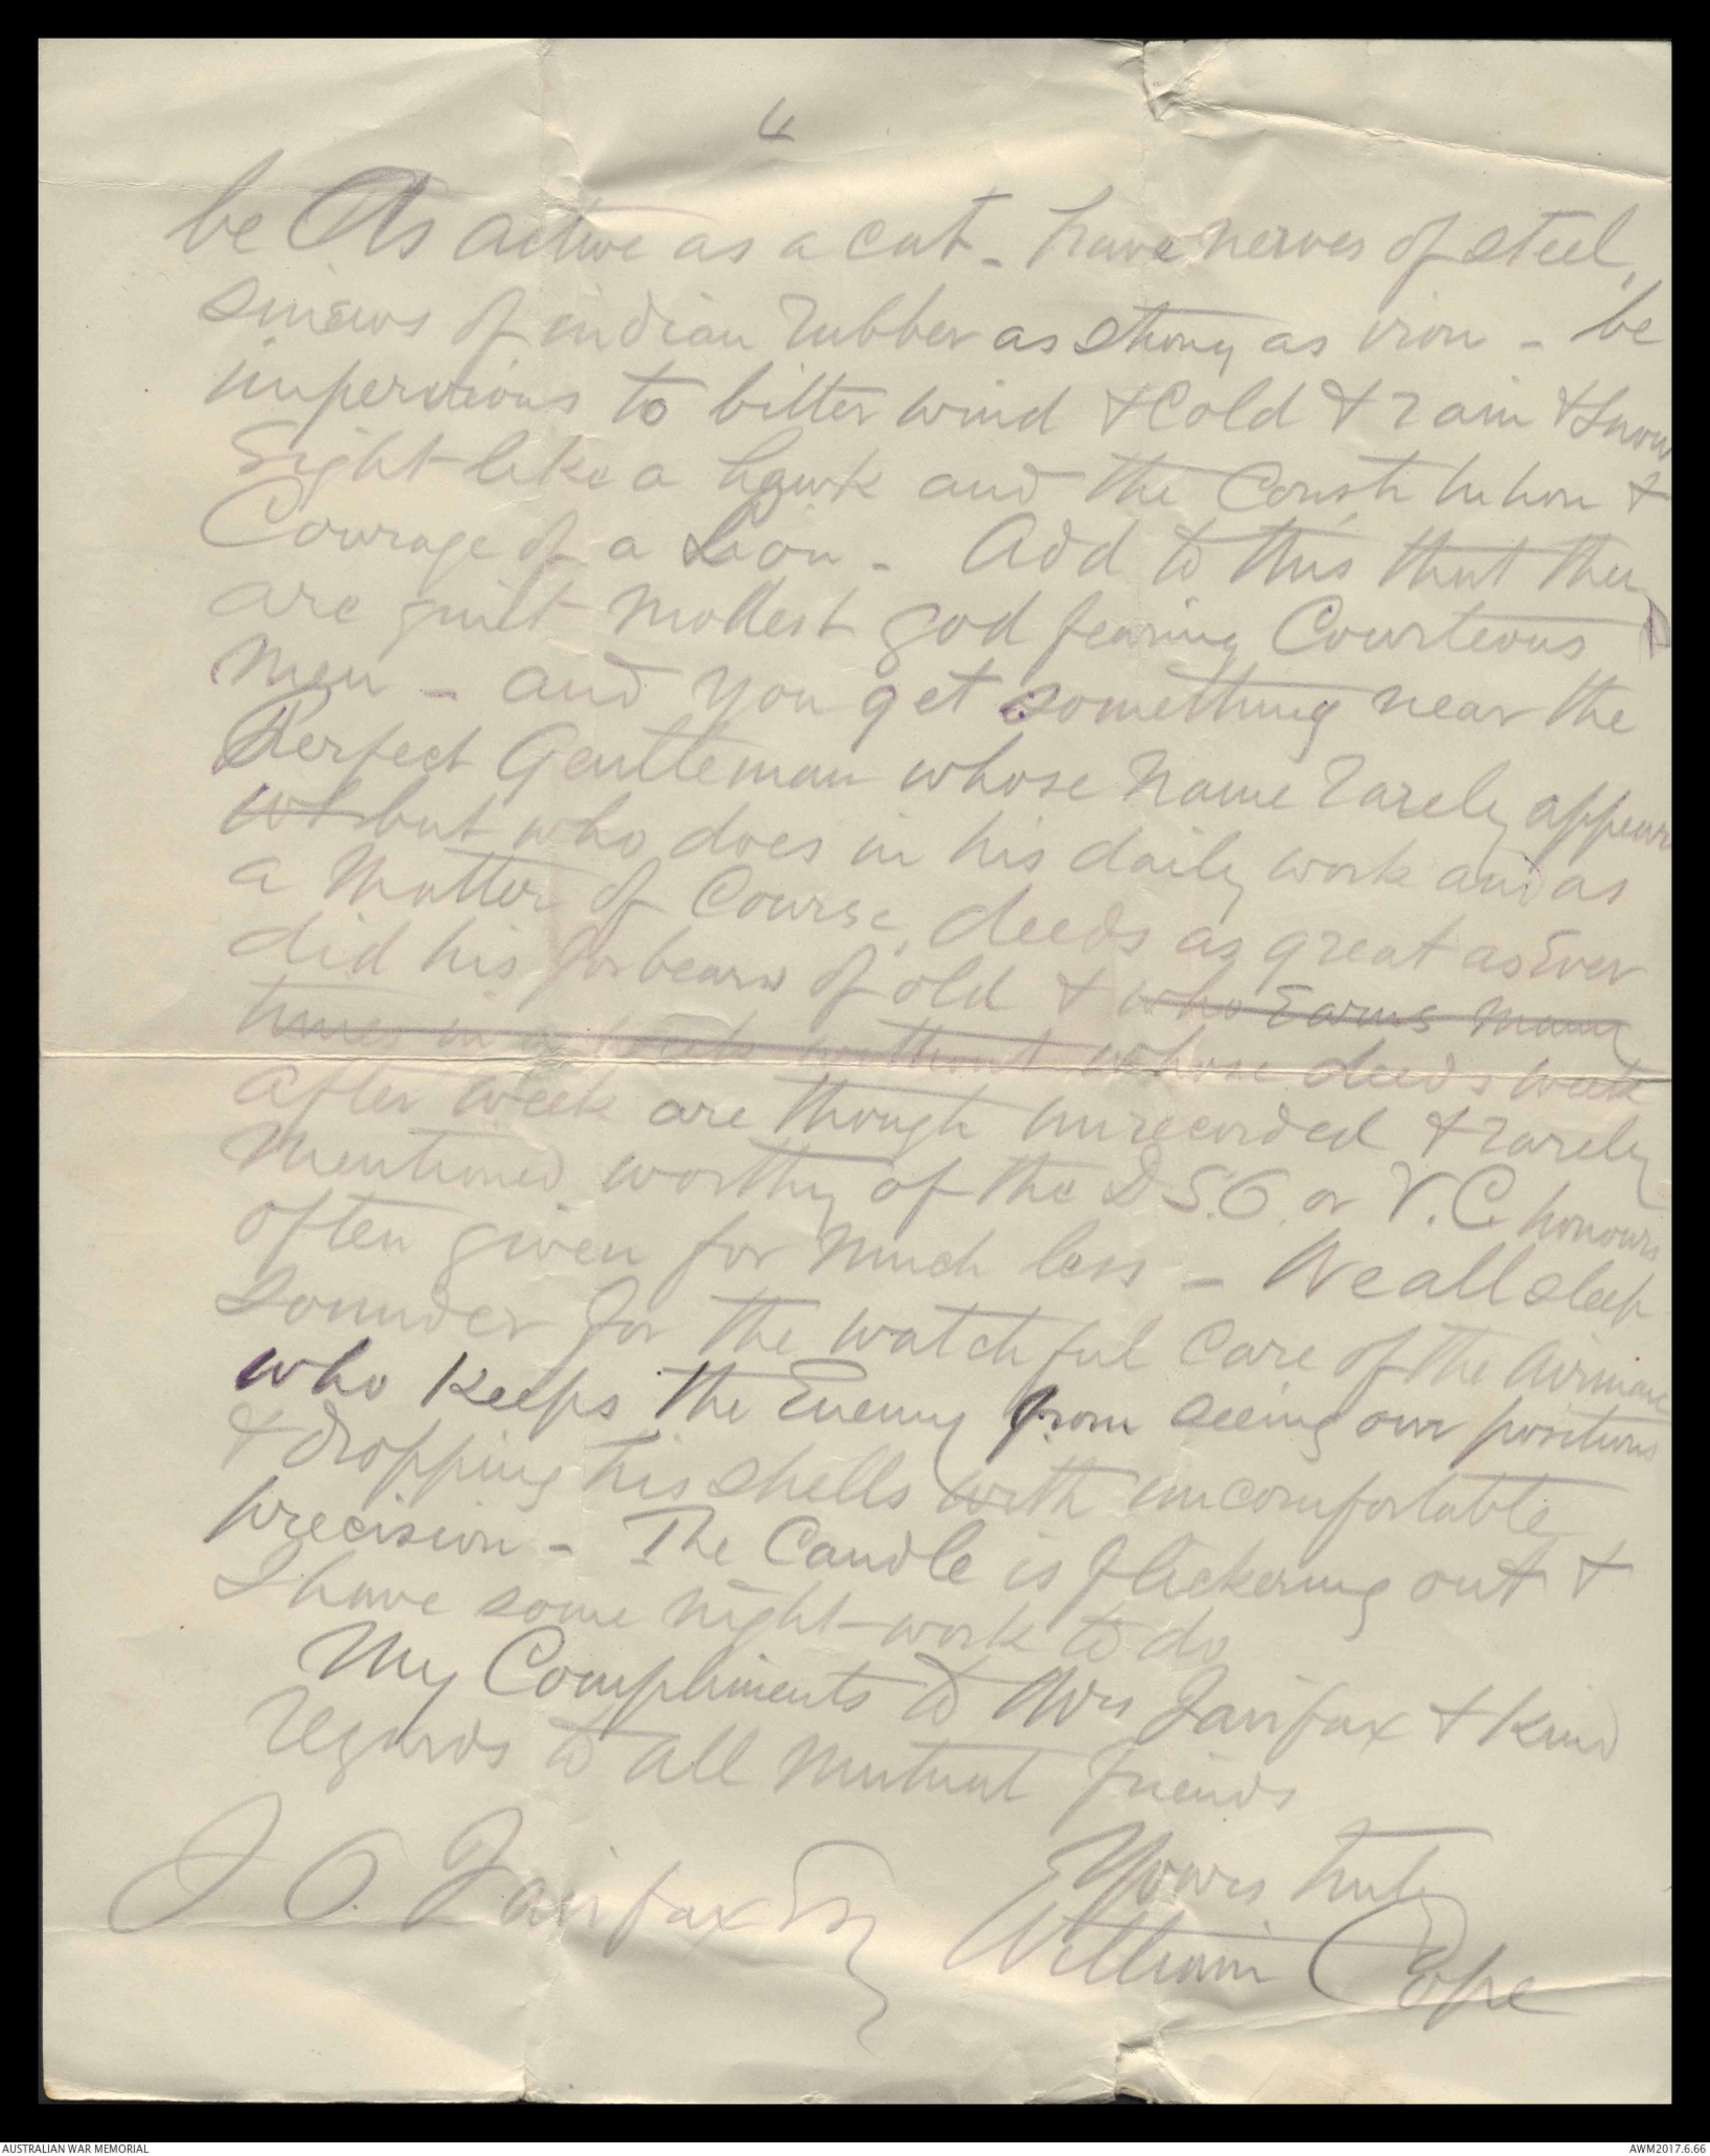 4
be As active as a cat - have nerves of steel,
sinews of indian rubber as strong as iron - be
impervious to bitter wind & Cold & rain & Snow
Sight like a hawk and the Constitution &
Courage of a Lion - Add to this that they
are quiet modest god fearing Courteous
Men - and you get something near the
Perfect Gentleman whose name rarely appears
but who does in his daily work and as
a Matter of Course, deeds as great as Ever
did his forbears of old & who Earns many
times in a week without whose deeds week
after week are though unrecorded & rarely
Mentioned worthy of the D.S.O. or V.C. honours
often given for much less - We all sleep
sounder for the watchful Care of the Airman
who Keeps the Enemy from seeing our positions
& dropping his shells with uncomfortable
precision - The Candle is flickering out &
I have some night-work to do
My Compliments to Mrs Fairfax & Kind
regards to all Mutual friends
Yours truly
J. O. Fairfax Esq William Cope
AUSTRALIAN WAR MEMORIAL
AWM2017.6.66